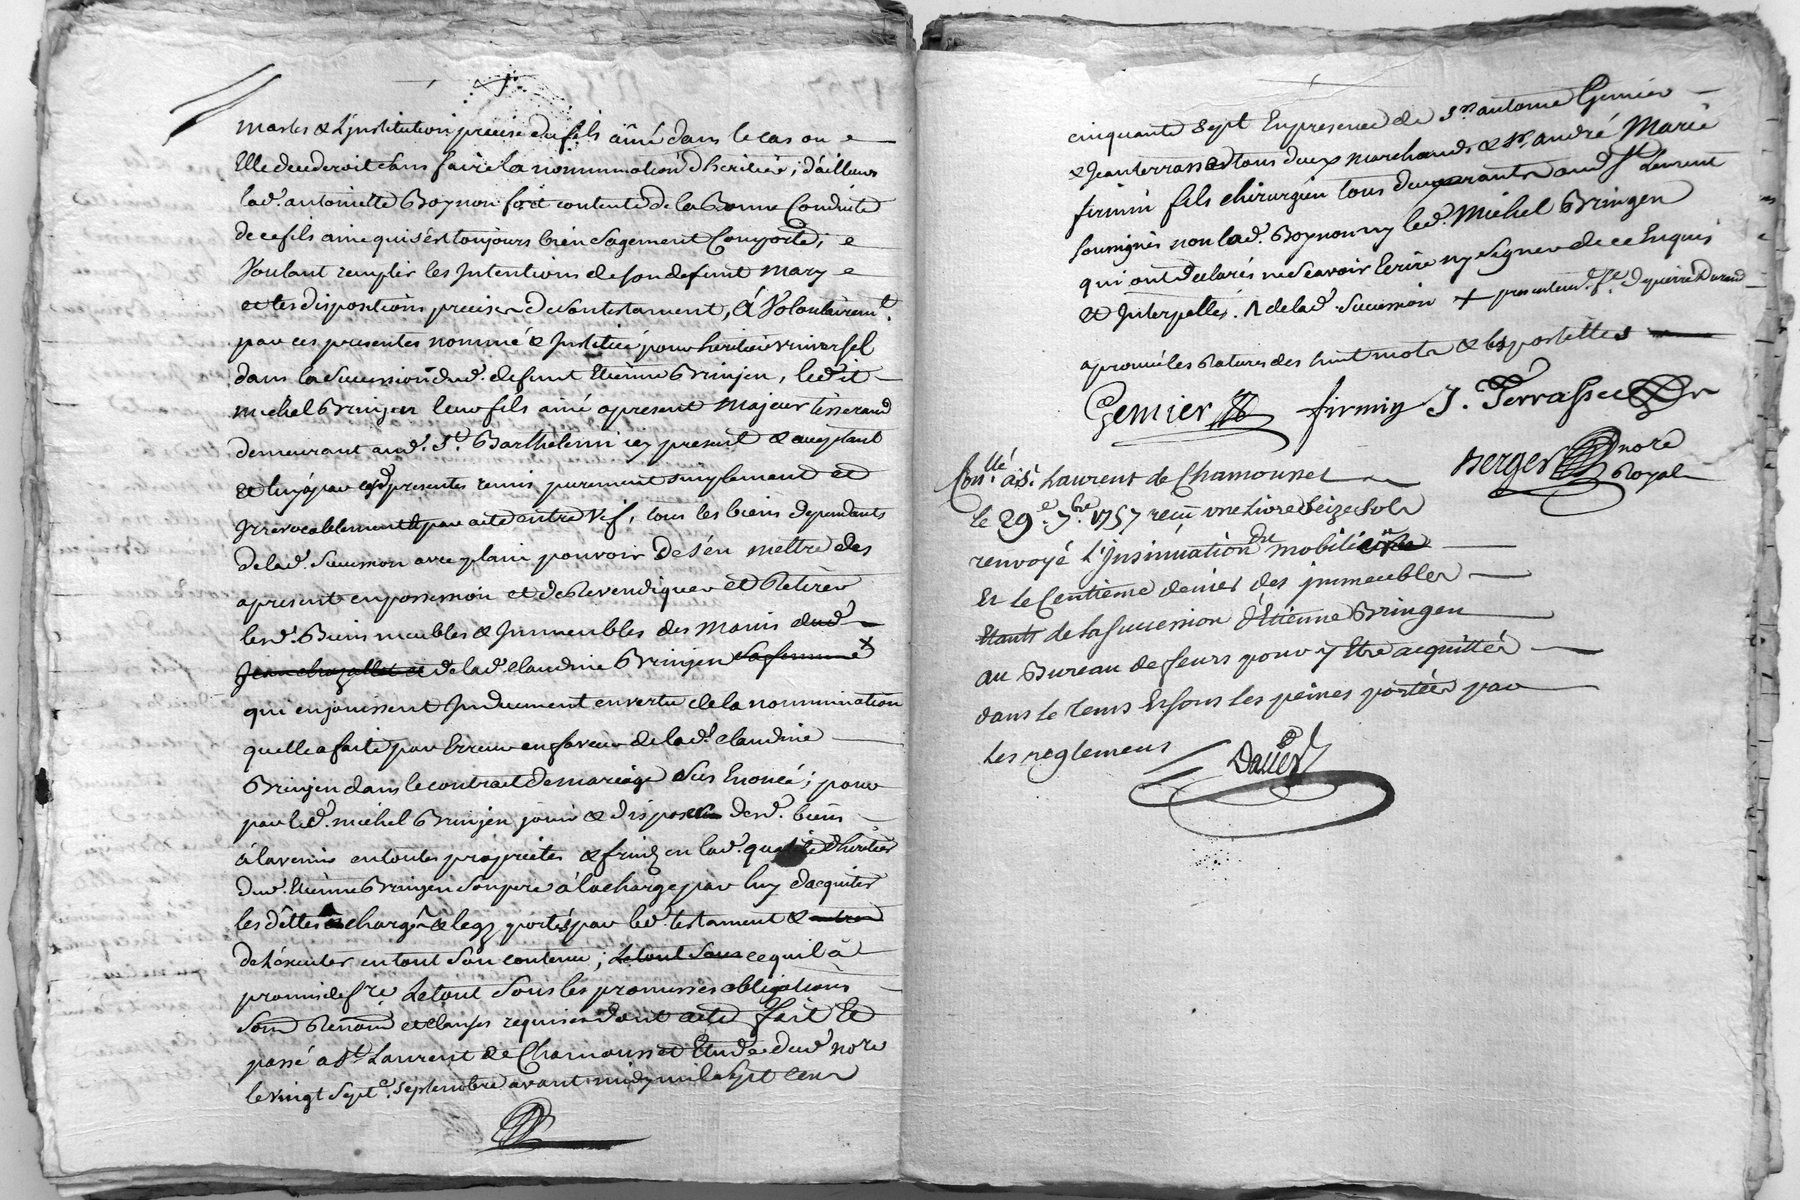 masles & l'institution precise du fils aîné dans le cas ou
Elle deuderoit sans faire la nommination d'heritier, d'ailleurs
lad. antoinette Boynon fort contente de la Bonne Conduite
de ce fils aine qui s'est toujours bien sagement Comporté,
Voulant remplir les Intentions de son defunt mary
et les dispositions precises de son testament, à Volontairemt.
par ces presentes nommé & Institué pour heritier universel
dans la sucession dud. defunt Etienne Bringen, led.
michel Bringen leur fils ainé apresent majeur tisserand
demeurant aud. St. Barthelemi icy present & aceptant
et luy a par ces presentes remis purement simplement et
Irrevocablement & par acte entre vif, tous les biens dependants
de lad. sucession avec plain pouvoir de s'en mettre des
apresent en possession et de Revendiquer et Retirer
lesd. Biens meubles & Immeubles des mains dud.
Jean chazallet et de lad. claudine Bringen sa femme +
qui enjouissent Induement en vertu de la nommination
quelle a faite par Erreur en faveur de lad. claudine
Bringen dans le contract de mariage sus Enoncé; pour
par led. michel Bringen jouir & disposer desd. biens
à lavenir en toutes proprietes & fruits en lad. qualité d'heritier
dud. Etienne Bringen son pere à la charge par luy dacquiter
les dêttes charges & legs portés par led. testament &
de Lexecuter en tout son contenu; Le tout sous ce quil à
promis de fre. Le tout sous les promesses obligations
Soum Renond et clauses requises dont acte fait Et
passé a St. Laurent de Chamousset Etude dud. nore
le vingt septe. septembre avant midy mil sept cens
cinquante sept En presence de Sr. antoine Gemier
& Jean terrasse tous deux marchands & Sr. andré Marie
firmin fils chirurgien tous demeurants aud. St. Laurent
soussignés non lad. Boynon ny led. Michel Bringen
qui ont declarés ne scavoir Ecrire ny signer de ce Enquis
et Interpellés. Λ de lad. sucession + Durand
aprouvé les ratures des huit mots & les postilles
Gemier firmin J. Terrasse
Berger nore
Royal
Conllé. à St. Laurent de Chamousset
le 29e. 7bre. 1757 reçu une livre seize sols
renvoyé l'Insinuation du mobilier
Et le Centieme denier des immeubles
Etants de la succession d'Etienne Bringen
au Bureau de feurs pour y Etre acquitté
dans le tems Et sous les peines portées par
les reglemens